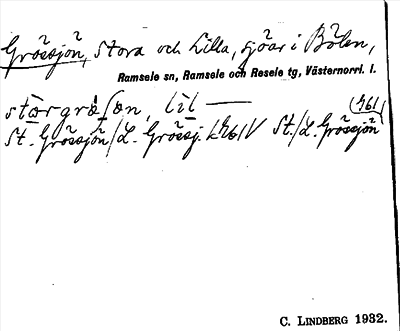 Grössjön, Stora och Lilla, sjöar i Bölen,
Ramsele sn, Ramsele och Resele tg, Västernorrl. l.
lil —
St. Grössjön/L. Grössj. St./L. Grössjön
C. LINDBERG 1932.